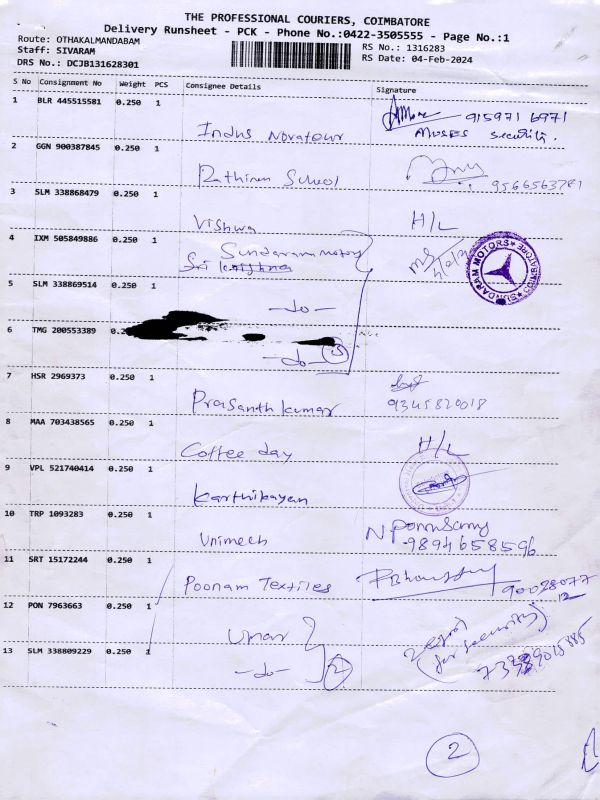 THE PROFESSIONAL COURIERS, COIMBATORE
Delivery Runsheet - PCK - Phone No.:0422-3505555 - Page No.:1
Route: OTHAKALMANDABAM
RS No.: 1316283
Staff: SIVARAM
RS Date: 04-Feb-2024
DRS No.: DCJB131628301
S No Consignment No Weight PCS Consignee Details Signature
1 BLR 445515581 0.250 1
915971 6971
Indus Novateur MOSES security.
2 GGN 900387845 0.250 1
Rathinam School 9566563781
3 SLM 338868479 0.250 1
Vishwa H/L
4 IXM 505849886 0.250 1
Sundaram motors
SUNDARAM MOTORS
5 SLM 338869514 0.250 1
-do-
6 TMG 200553389 0.2
-do- 3
7 HSR 2969373 0.250 1
Prasanth kumar 9345820018
8 MAA 703438565 0.250 1
Coffee day H/L
9 VPL 521740414 0.250 1
Karthikayan
10 TRP 1093283 0.250 1
Unimech 9894658596
11 SRT 15172244 0.250 1
Poonam Textiles
12 PON 7963663 0.250 1
Umar
(for security)
13 SLM 338809229 0.250 1
-do- 2
2